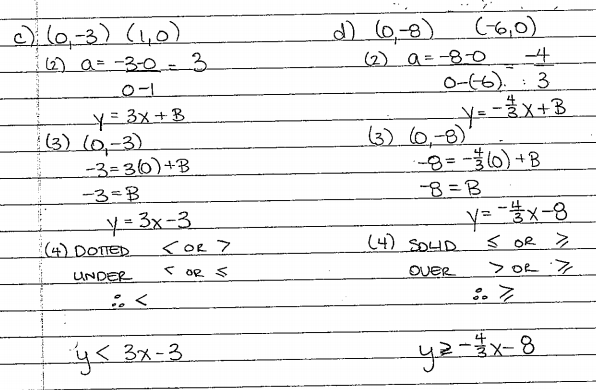 c) (0,-3) (1,0)
(2) a = -3-0 = 3
0-1
y = 3x + B
(3) (0,-3)
-3 = 3(0) + B
-3 = B
y = 3x - 3
(4) DOTTED < OR >
UNDER < OR ≤
∴ <
y < 3x - 3
d) (0,-8) (-6,0)
(2) a = -8-0 = -4
0-(-6) 3
y = -4/3 x + B
(3) (0,-8)
-8 = -4/3(0) + B
-8 = B
y = -4/3 x - 8
(4) SOLID ≤ OR ≥
OVER > OR ≥
∴ ≥
y ≥ -4/3 x - 8